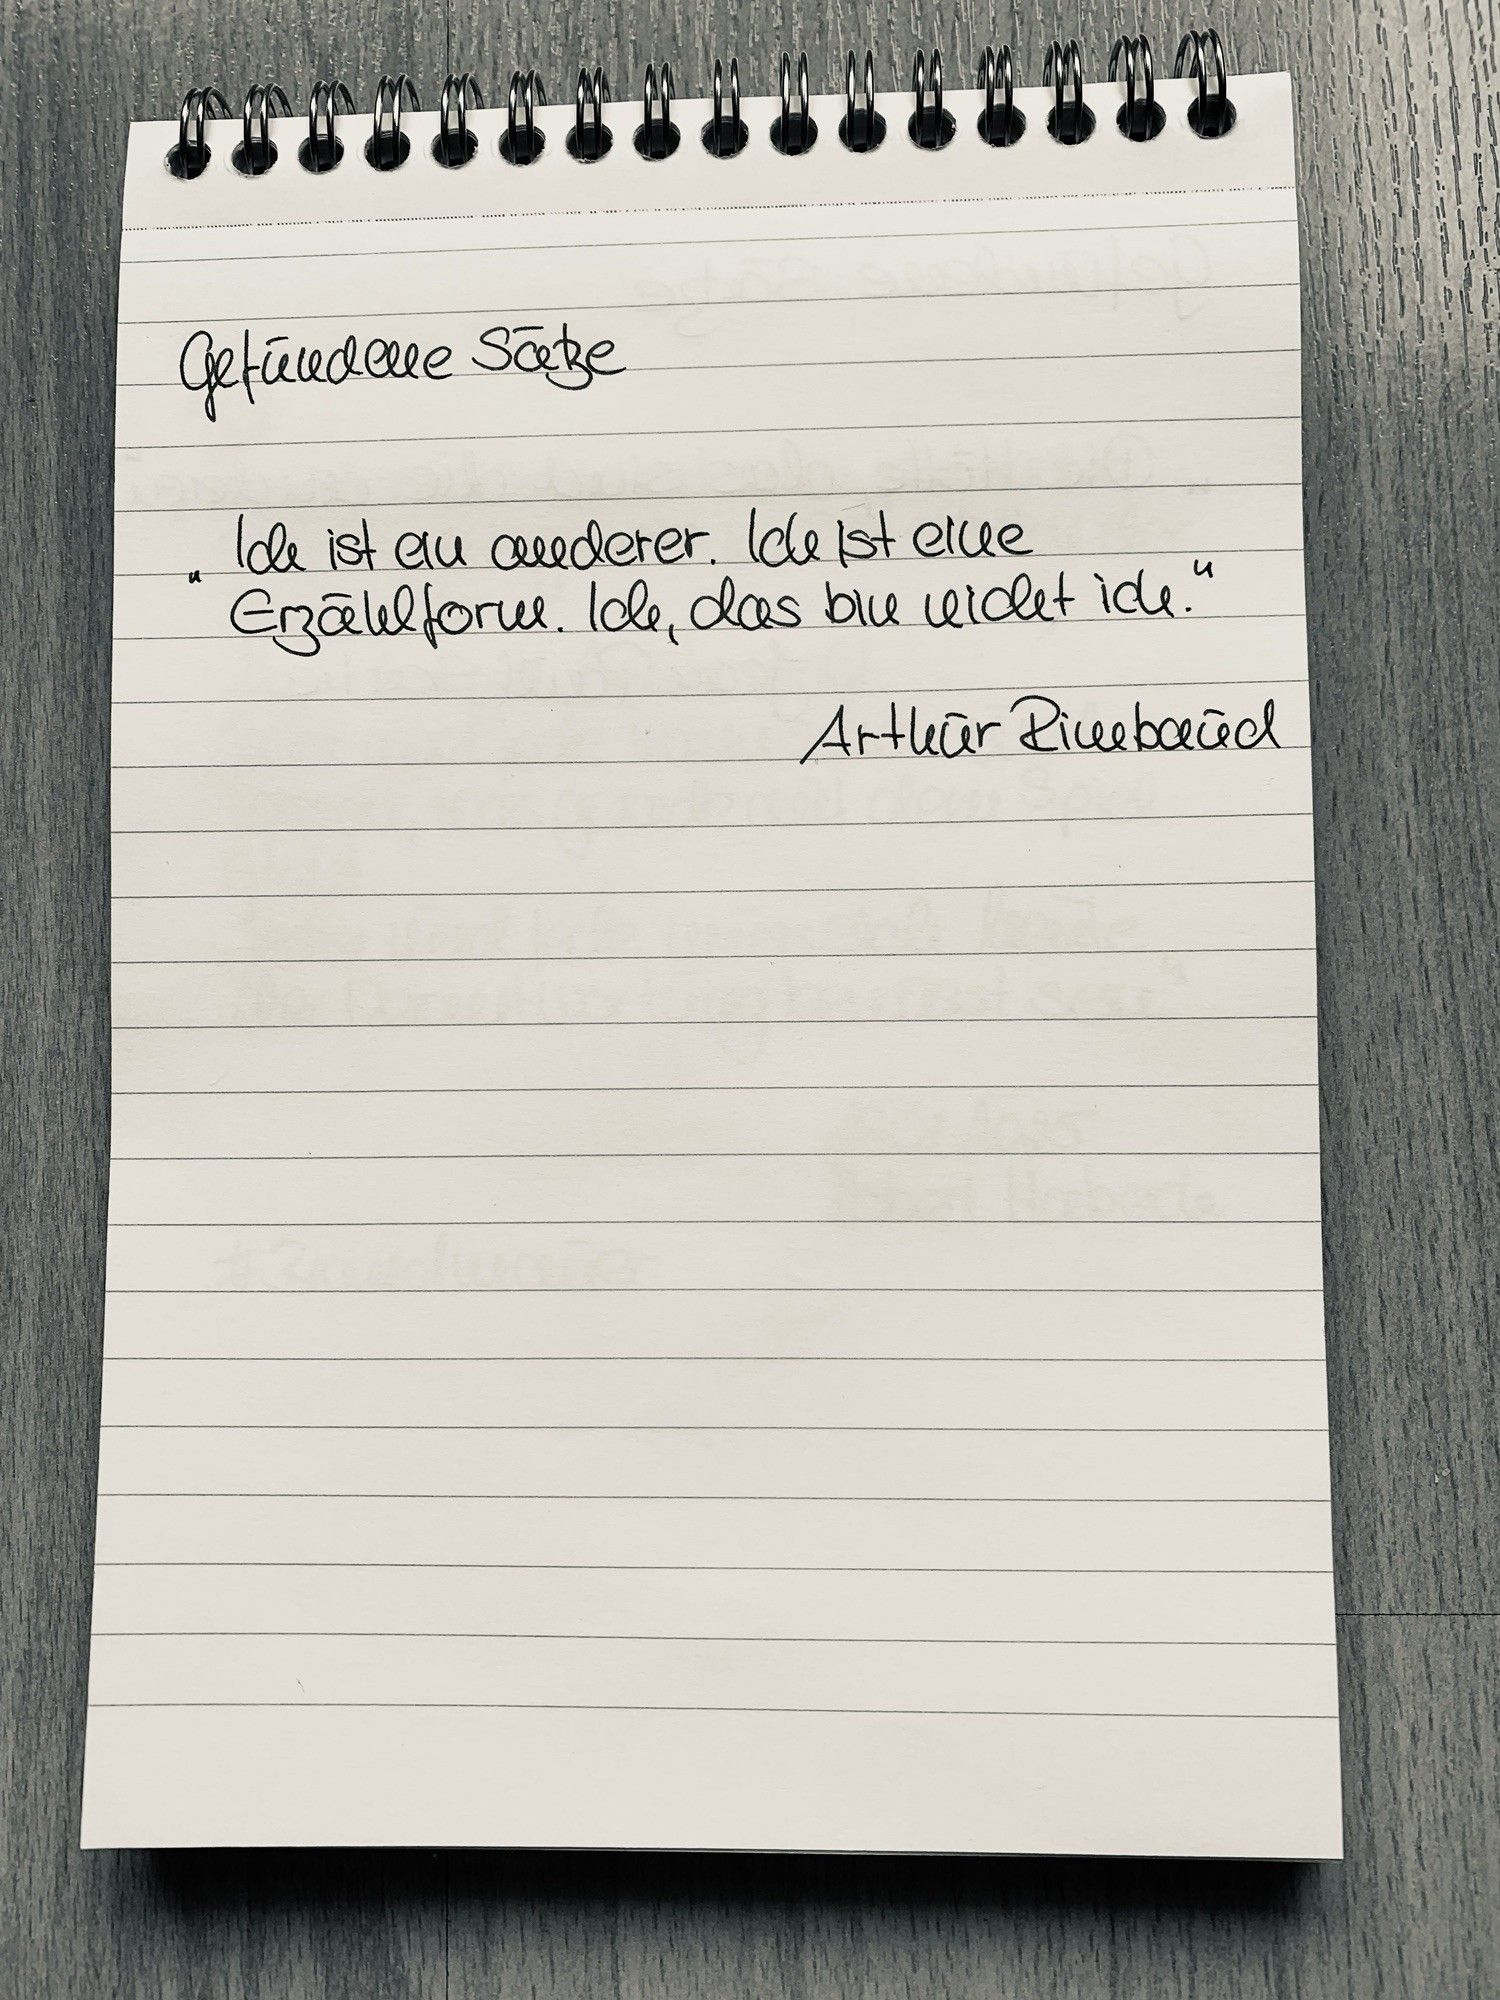 Gefundene Sätze
„Ich ist ein anderer. Ich ist eine
Erzählform. Ich, das bin nicht ich."
Arthur Rimbaud